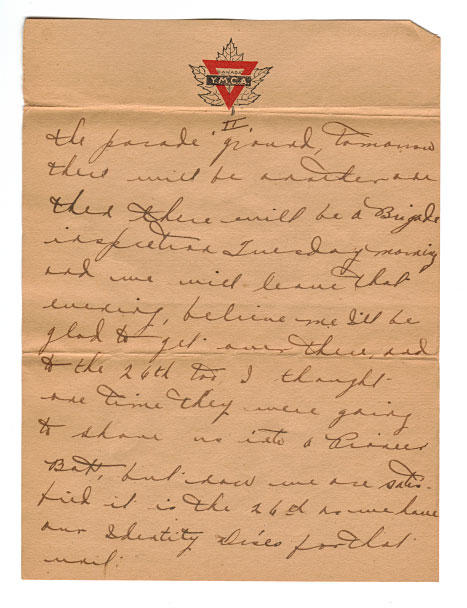 CANADA
Y.M.C.A.
II
the parade ground, Tomorrow
there will be another one
then there will be a Brigade
inspection Tuesday morning
and we will leave that
evening, believe me I'll be
glad to get over there, and
to the 26th too I thought
one time they were going
to shove us into a Pioneer
Batt, but now we are satis-
fied it is the 26th as we have
our Identity Discs for that
unit.